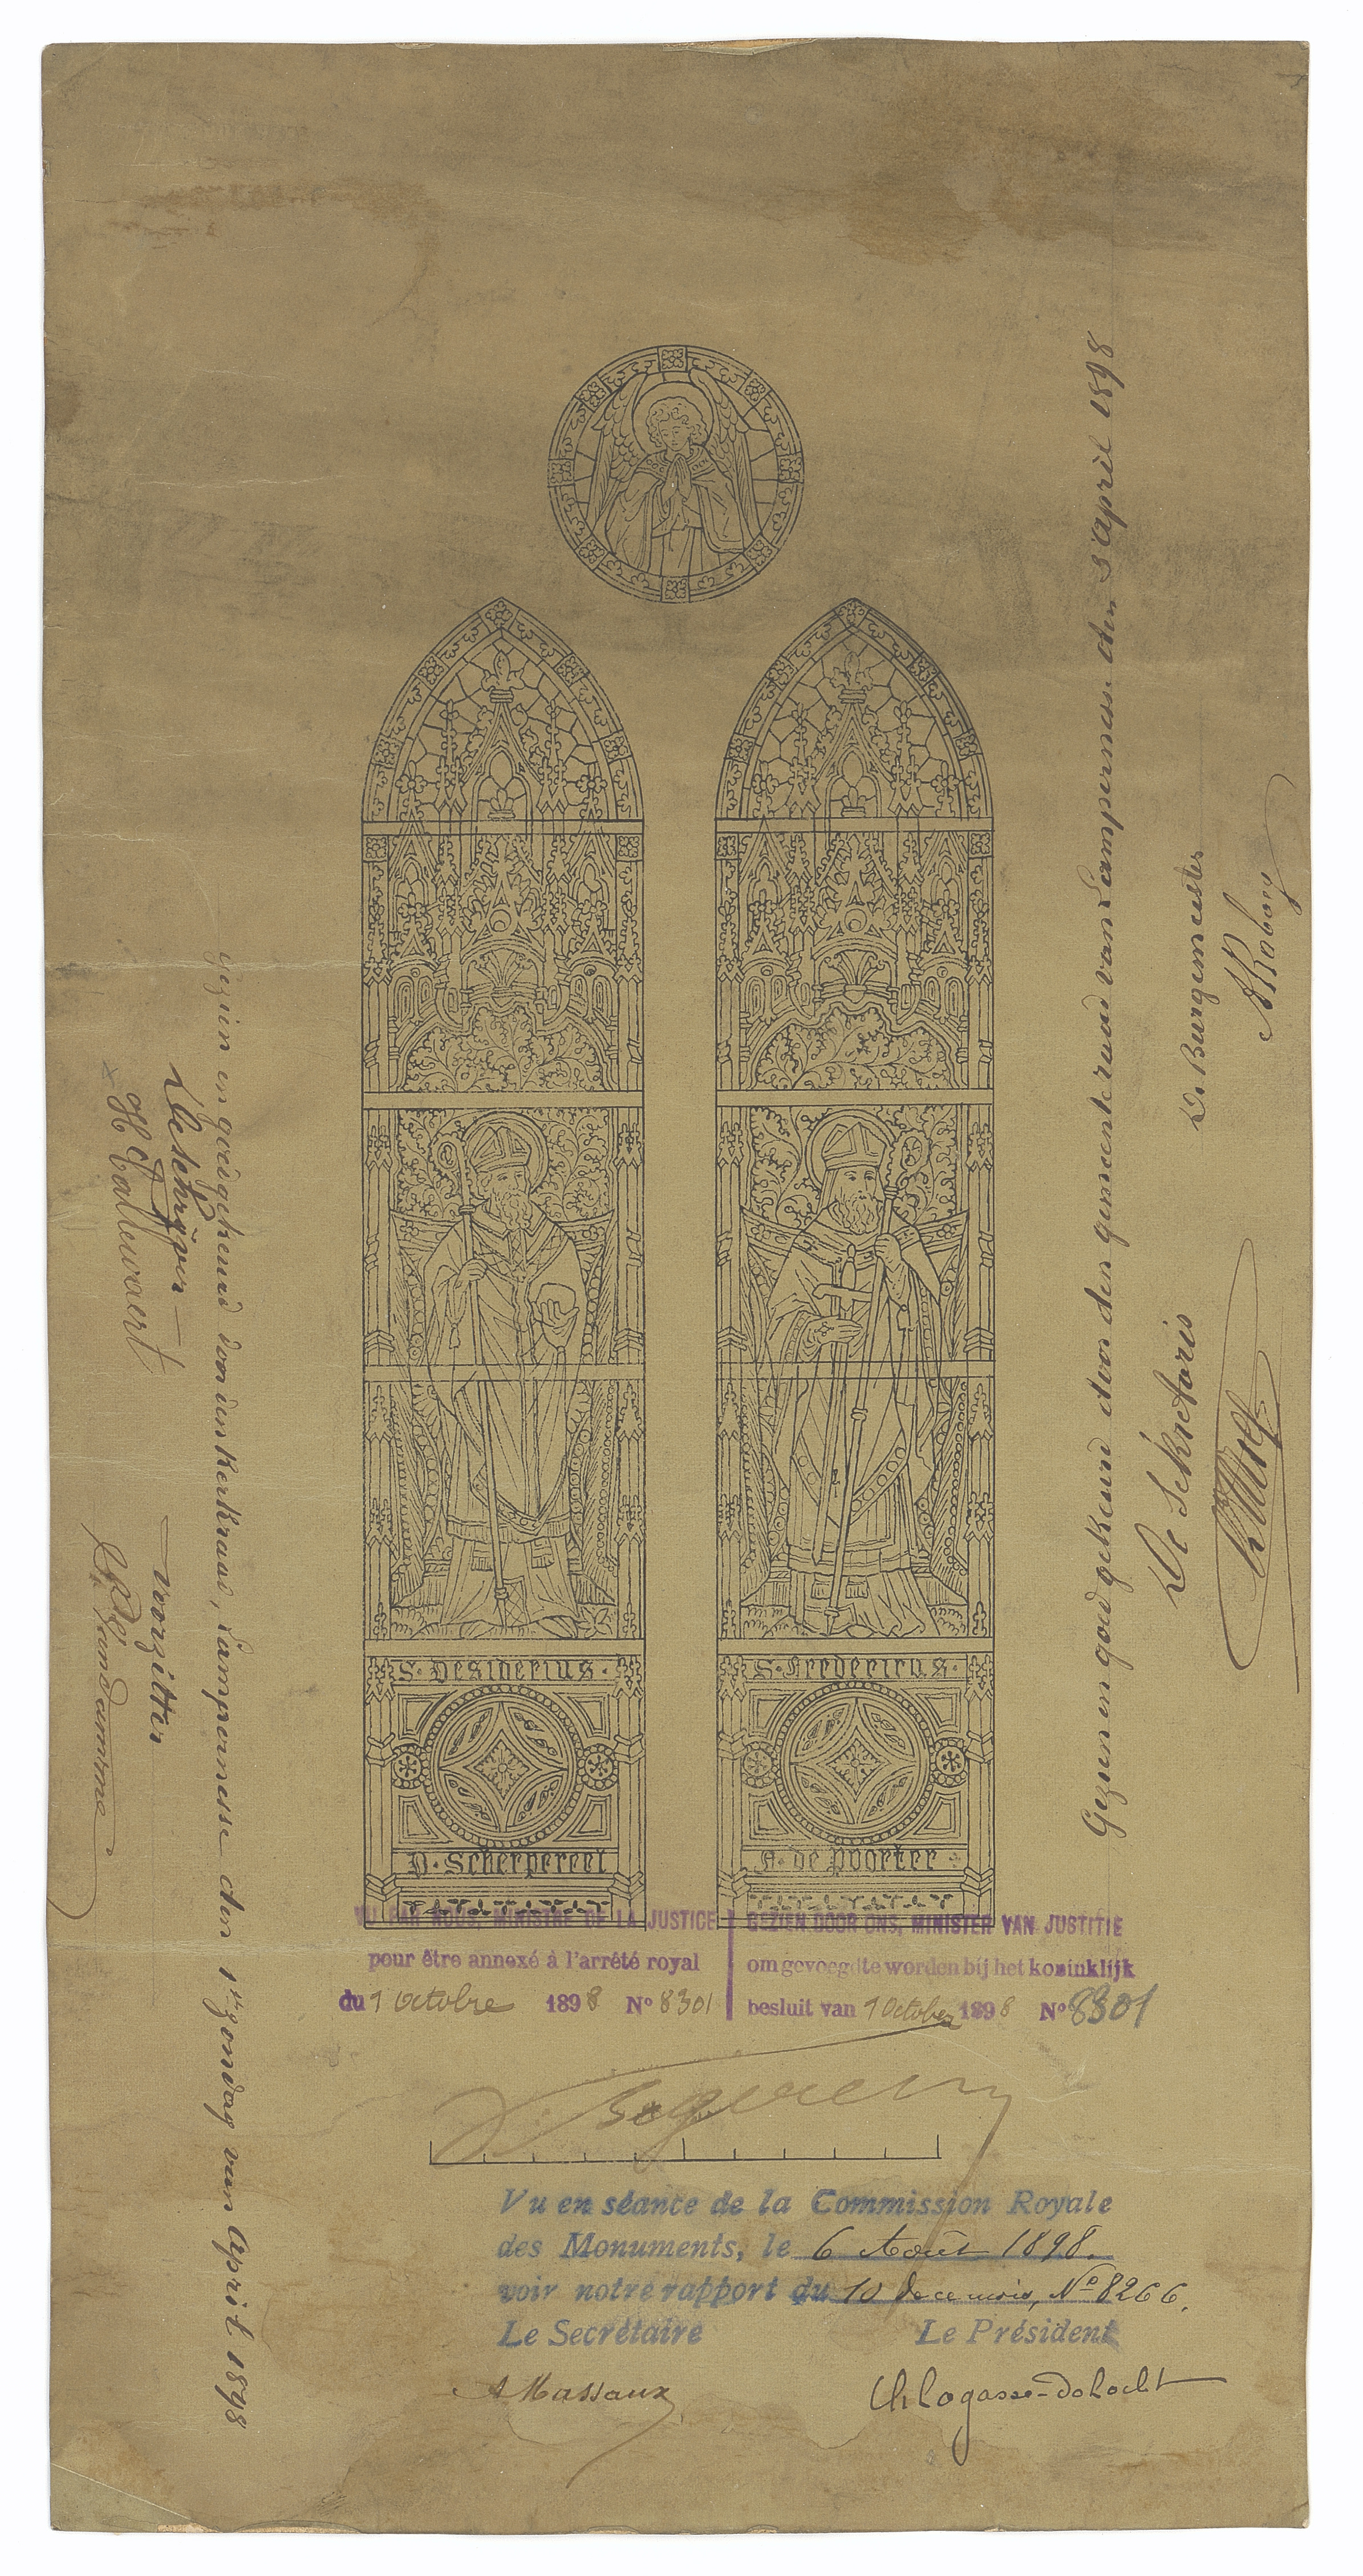 S. Desiderius.
D. Scherpereel
S. Fredericus.
A. de Poorter.
VU PAR NOUS, MINISTRE DE LA JUSTICE
pour être annexé à l'arrêté royal
du 1 Octobre 1898 No 8301
GEZIEN DOOR ONS, MINISTER VAN JUSTITIE
om gevoegd te worden bij het koninklijk
besluit van 1 October 1898 No 8301
Vu en séance de la Commission Royale
des Monuments, le 6 Août 1898.
voir notre rapport du 10 de ce mois, No 8266.
Le Secrétaire Le Président
A Massaux Ch Lagasse-de Locht
Gezien en goed gekeurd door den gemeenteraad van Lampernesse den 8 april 1898
De Sekretaris
De Burgemeester
gezien en goedgekeurd door den kerkraad, Lampernesse den 1en zondag van April 1898
De schrijver
H Callewaert
voorzitter